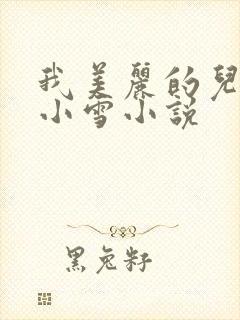 我美麗的兒
小雪小說
黑兔籽